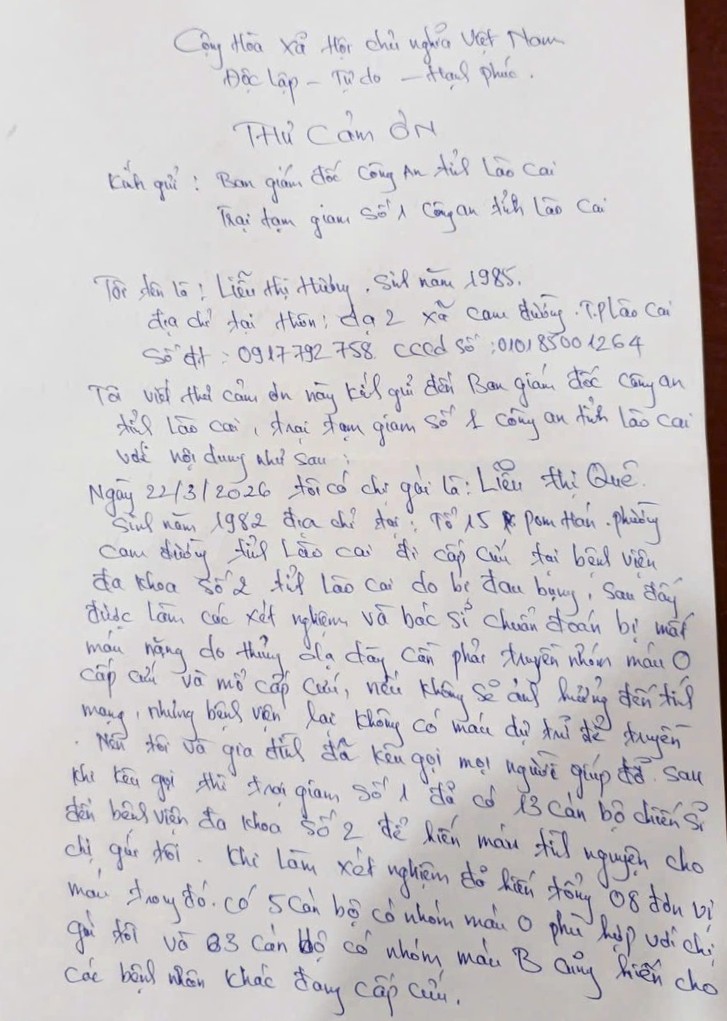 Cộng Hòa xã Hội chủ nghĩa Việt Nam
Độc Lập - Tự do - Hạnh phúc.
THƯ CẢM ƠN
Kính gửi : Ban giám đốc Công An tỉnh Lào Cai
Trại tạm giam số 1 Công an tỉnh Lào Cai
Tôi tên là : Liễu thị Hường . Sinh năm 1985.
địa chỉ tại thôn: dạ 2 xã Cam đường . T.P Lào Cai
Số đt : 0917792758 CCCd số : 010185001264
Tôi viết thư cảm ơn này kính gửi đến Ban giám đốc công an
tỉnh Lào Cai, trại tạm giam số 1 công an tỉnh Lào Cai
với nội dung như sau :
Ngày 22/3/2026 tôi có chị gái là : Liễu thị Quê.
Sinh năm 1982 địa chỉ tại : Tổ 15 Pom Hán . phường
Cam đường tỉnh Lào Cai đi cấp cứu tại bệnh viện
đa khoa số 2 tỉnh Lào Cai do bị đau bụng, Sau đấy
được làm các xét nghiệm và bác sĩ chuẩn đoán bị mất
máu nặng do thủng dạ dày cần phải truyền nhóm máu O
cấp cứu và mổ cấp cứu, nếu không sẽ ảnh hưởng đến tính
mạng, nhưng bệnh viện lại không có máu dự trữ để truyền
. Nên tôi và gia đình đã kêu gọi mọi người giúp đỡ. Sau
khi kêu gọi thì trại giam số 1 đã có 13 cán bộ chiến sĩ
đến bệnh viện đa khoa số 2 để hiến máu tình nguyện cho
chị gái tôi . Khi làm xét nghiệm đã hiến tổng 08 đơn vị
máu trong đó. có 5 cán bộ có nhóm máu O phù hợp với chị
gái tôi và 03 cán bộ có nhóm máu B cũng hiến cho
các bệnh nhân khác đang cấp cứu.